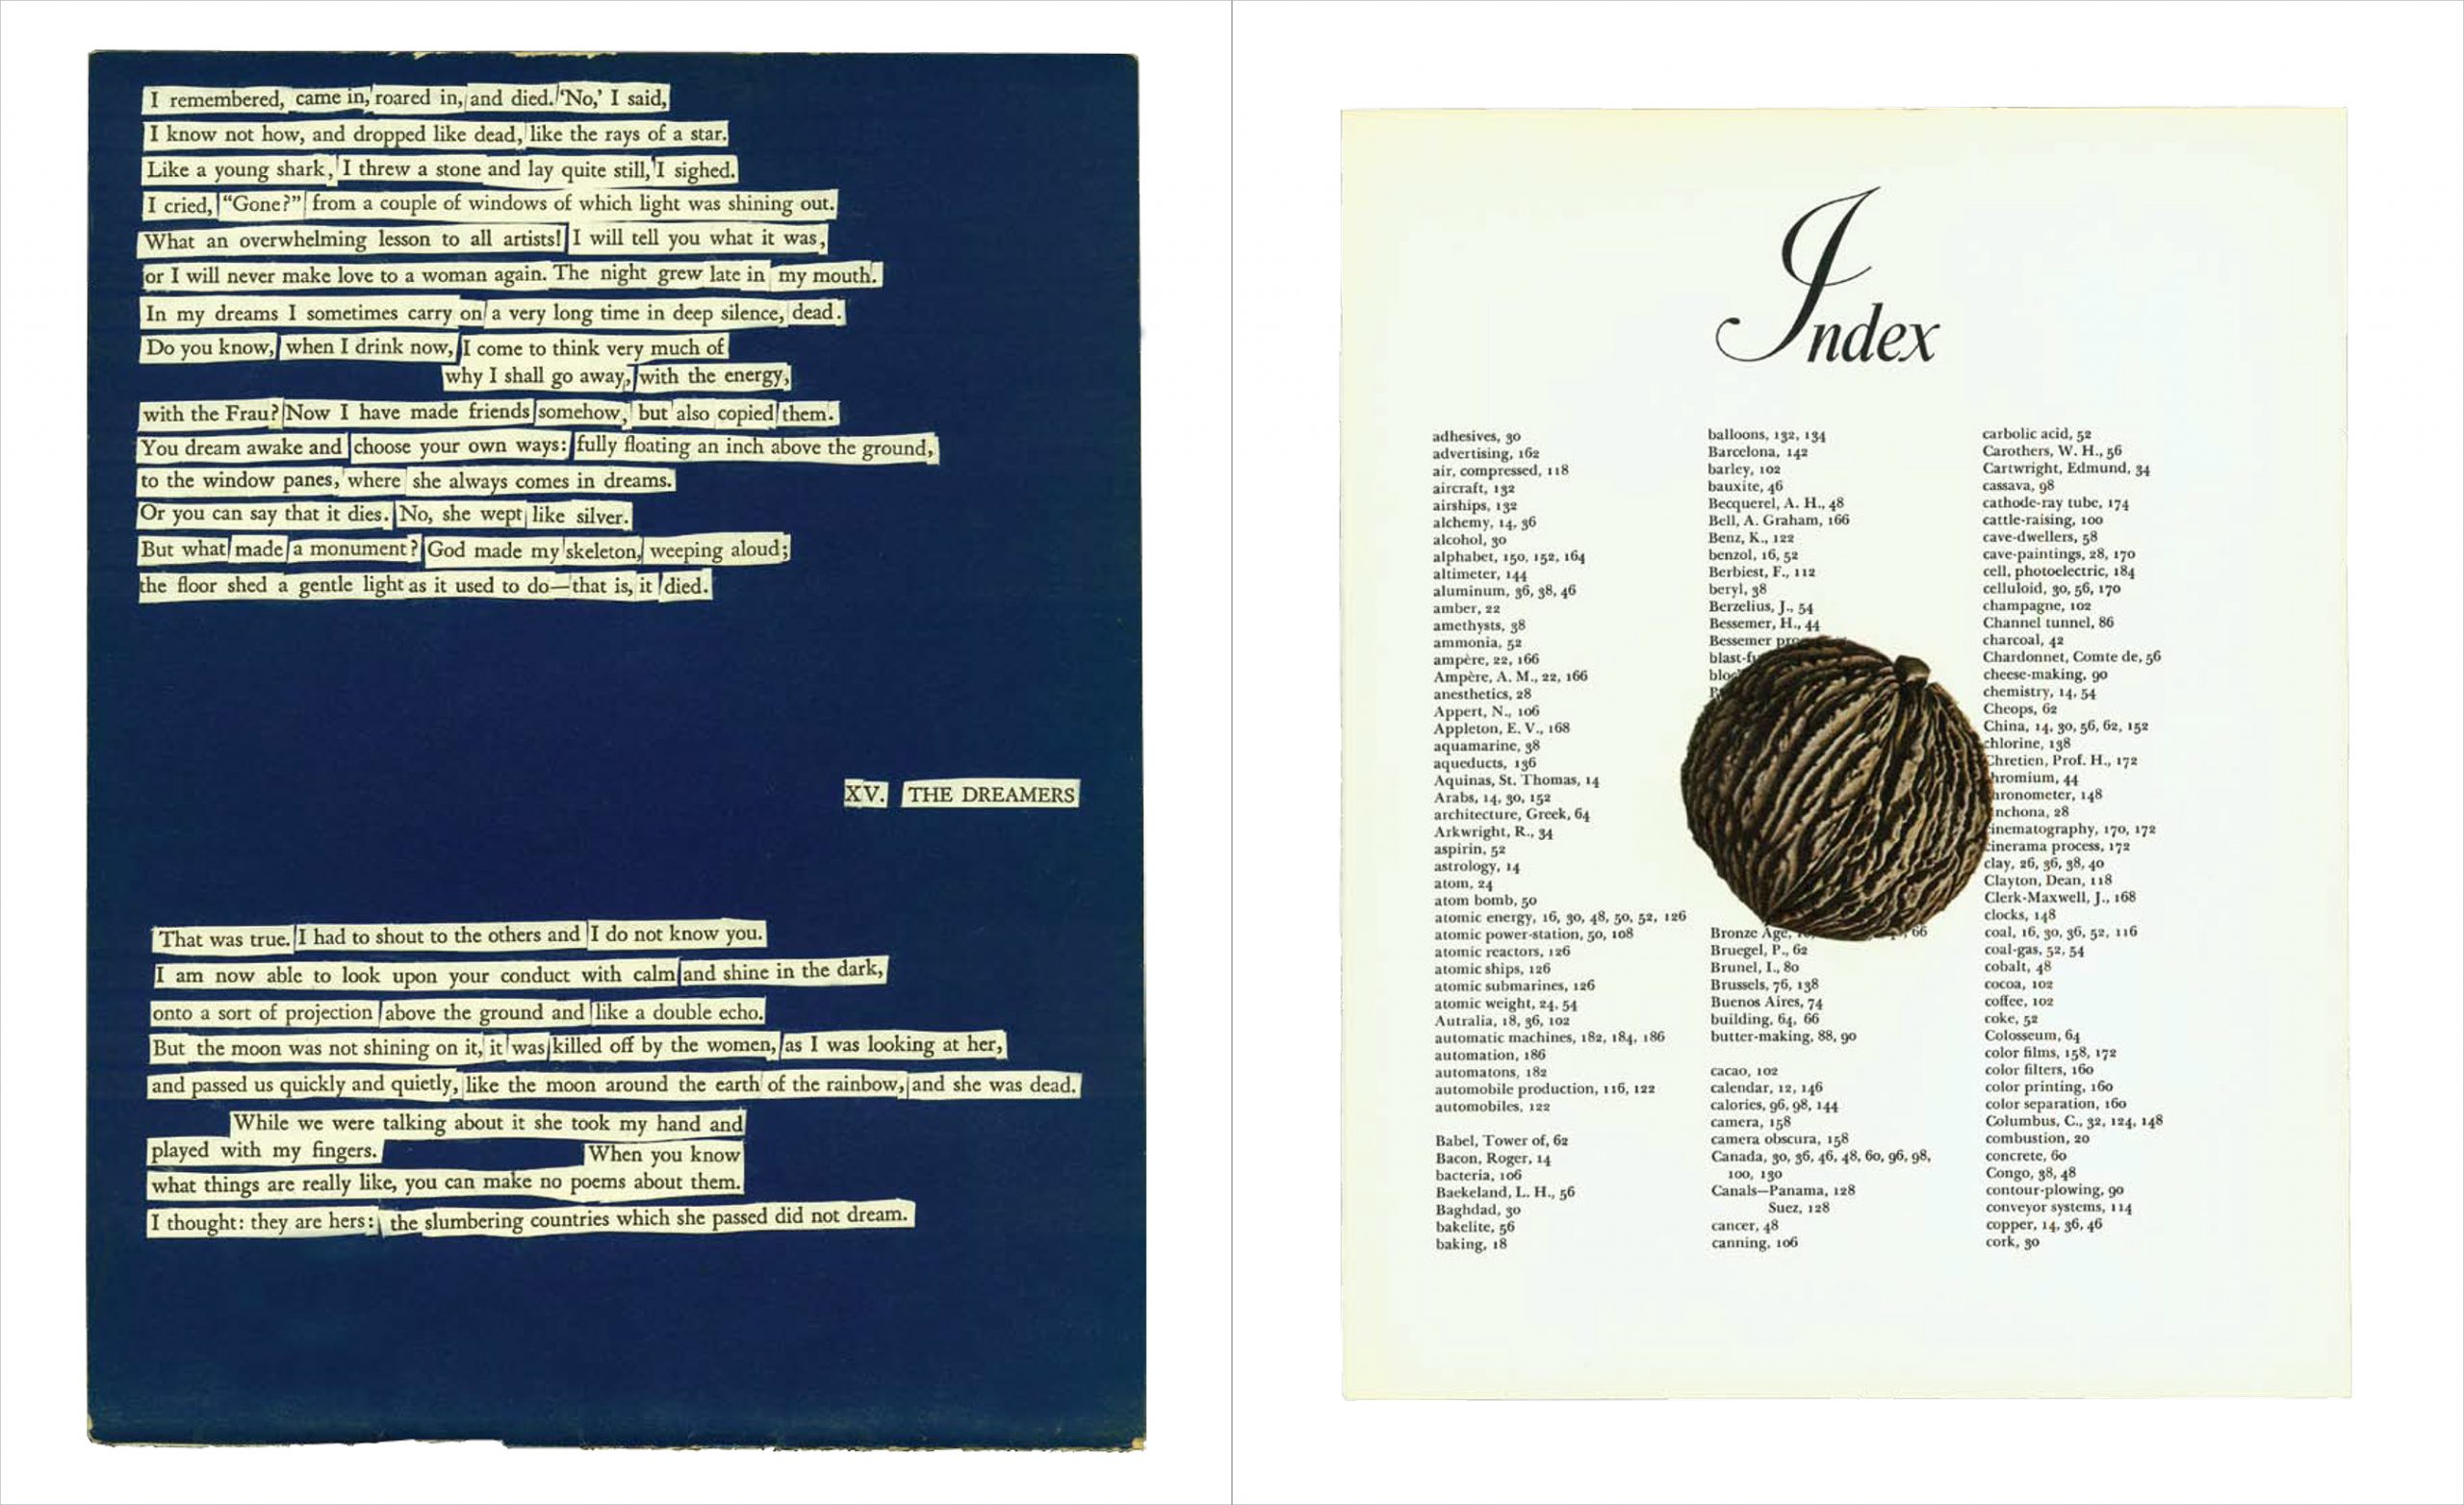 I remembered, came in, roared in, and died. 'No,' I said,
I know not how, and dropped like dead, like the rays of a star.
Like a young shark, I threw a stone and lay quite still, I sighed.
I cried, "Gone?" from a couple of windows of which light was shining out.
What an overwhelming lesson to all artists! I will tell you what it was,
or I will never make love to a woman again. The night grew late in my mouth.
In my dreams I sometimes carry on a very long time in deep silence, dead.
Do you know, when I drink now, I come to think very much of
why I shall go away, with the energy,
with the Frau? Now I have made friends somehow, but also copied them.
You dream awake and choose your own ways: fully floating an inch above the ground,
to the window panes, where she always comes in dreams.
Or you can say that it dies. No, she wept like silver.
But what made a monument? God made my skeleton, weeping aloud;
the floor shed a gentle light as it used to do—that is, it died.
XV. THE DREAMERS
That was true. I had to shout to the others and I do not know you.
I am now able to look upon your conduct with calm and shine in the dark,
onto a sort of projection above the ground and like a double echo.
But the moon was not shining on it, it was killed off by the women, as I was looking at her,
and passed us quickly and quietly, like the moon around the earth of the rainbow, and she was dead.
While we were talking about it she took my hand and
played with my fingers. When you know
what things are really like, you can make no poems about them.
I thought: they are hers: the slumbering countries which she passed did not dream.
Index
adhesives, 30
advertising, 162
air, compressed, 118
aircraft, 132
airships, 132
alchemy, 14, 36
alcohol, 30
alphabet, 150, 152, 164
altimeter, 144
aluminum, 36, 38, 46
amber, 22
amethysts, 38
ammonia, 52
ampère, 22, 166
Ampère, A. M., 22, 166
anesthetics, 28
Appert, N., 106
Appleton, E. V., 168
aquamarine, 38
aqueducts, 136
Aquinas, St. Thomas, 14
Arabs, 14, 30, 152
architecture, Greek, 64
Arkwright, R., 34
aspirin, 52
astrology, 14
atom, 24
atom bomb, 50
atomic energy, 16, 30, 48, 50, 52, 126
atomic power-station, 50, 108
atomic reactors, 126
atomic ships, 126
atomic submarines, 126
atomic weight, 24, 54
Autralia, 18, 36, 102
automatic machines, 182, 184, 186
automation, 186
automatons, 182
automobile production, 116, 122
automobiles, 122
Babel, Tower of, 62
Bacon, Roger, 14
bacteria, 106
Baekeland, L. H., 56
Baghdad, 30
bakelite, 56
baking, 18
balloons, 132, 134
Barcelona, 142
barley, 102
bauxite, 46
Becquerel, A. H., 48
Bell, A. Graham, 166
Benz, K., 122
benzol, 16, 52
Berbiest, F., 112
beryl, 38
Berzelius, J., 54
Bessemer, H., 44
Bessemer
Bronze Age, 66
Bruegel, P., 62
Brunel, I., 80
Brussels, 76, 138
Buenos Aires, 74
building, 64, 66
butter-making, 88, 90
cacao, 102
calendar, 12, 146
calories, 96, 98, 144
camera, 158
camera obscura, 158
Canada, 30, 36, 46, 48, 60, 96, 98,
100, 130
Canals—Panama, 128
Suez, 128
cancer, 48
canning, 106
carbolic acid, 52
Carothers, W. H., 56
Cartwright, Edmund, 34
cassava, 98
cathode-ray tube, 174
cattle-raising, 100
cave-dwellers, 58
cave-paintings, 28, 170
cell, photoelectric, 184
celluloid, 30, 56, 170
champagne, 102
Channel tunnel, 86
charcoal, 42
Chardonnet, Comte de, 56
cheese-making, 90
chemistry, 14, 54
Cheops, 62
China, 14, 30, 56, 62, 152
chlorine, 138
Chretien, Prof. H., 172
hromium, 44
hronometer, 148
nchona, 28
cinematography, 170, 172
cinerama process, 172
clay, 26, 36, 38, 40
Clayton, Dean, 118
Clerk-Maxwell, J., 168
clocks, 148
coal, 16, 30, 36, 52, 116
coal-gas, 52, 54
cobalt, 48
cocoa, 102
coffee, 102
coke, 52
Colosseum, 64
color films, 158, 172
color filters, 160
color printing, 160
color separation, 160
Columbus, C., 32, 124, 148
combustion, 20
concrete, 60
Congo, 38, 48
contour-plowing, 90
conveyor systems, 114
copper, 14, 36, 46
cork, 30